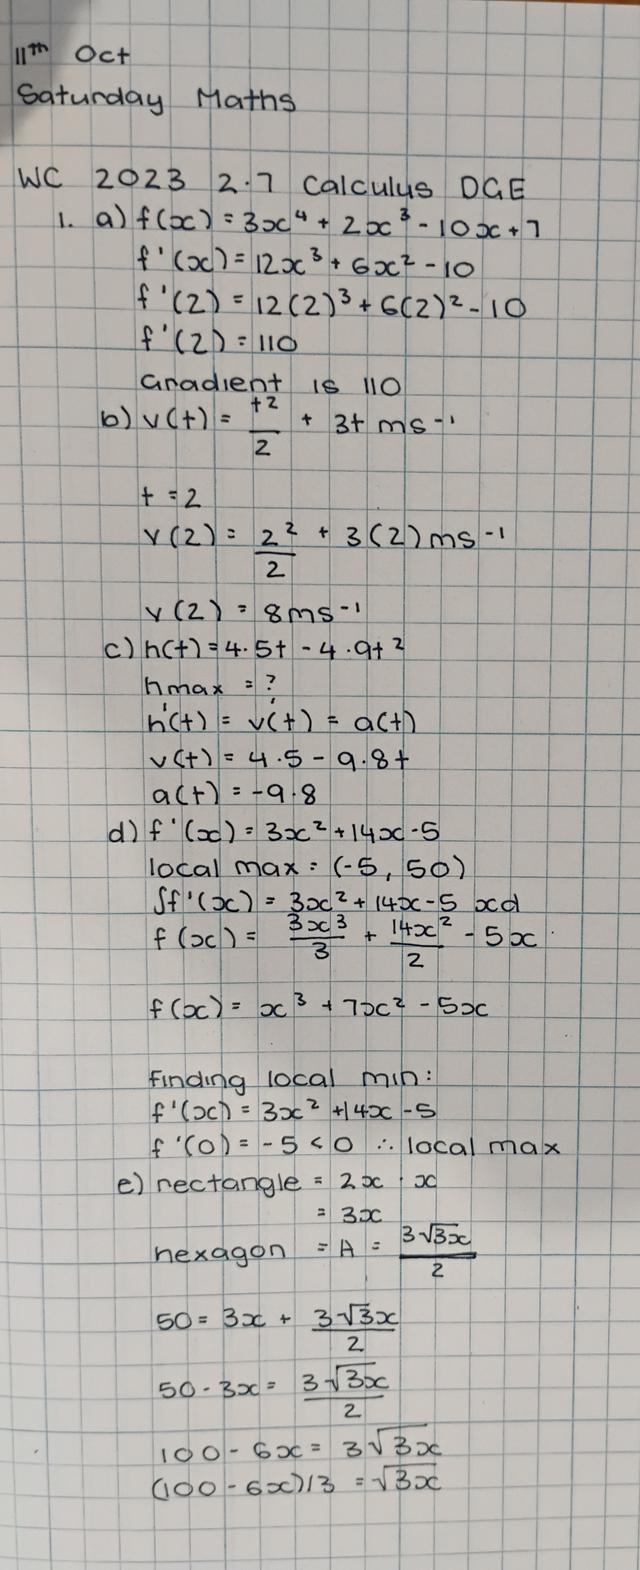 11th Oct
Saturday Maths
WC 2023 2.7 Calculus DGE
1. a) f(x) = 3x⁴ + 2x³ - 10x + 7
f'(x) = 12x³ + 6x² - 10
f'(2) = 12(2)³ + 6(2)² - 10
f'(2) = 110
Gradient is 110
b) v(t) = t²/2 + 3t ms⁻¹
t = 2
v(2) = 2²/2 + 3(2) ms⁻¹
v(2) = 8ms⁻¹
c) h(t) = 4.5t - 4.9t²
hmax = ?
h'(t) = v'(t) = a(t)
v(t) = 4.5 - 9.8t
a(t) = -9.8
d) f'(x) = 3x² + 14x - 5
local max = (-5, 50)
∫f'(x) = 3x² + 14x - 5 xd
f(x) = 3x³/3 + 14x²/2 - 5x
f(x) = x³ + 7x² - 5x
Finding local min:
f'(x) = 3x² + 14x - 5
f'(0) = -5 < 0 ∴ local max
e) rectangle = 2x · x
= 3x
hexagon = A = 3√3x/2
50 = 3x + 3√3x/2
50 - 3x = 3√3x/2
100 - 6x = 3√3x
(100 - 6x)/3 = √3x